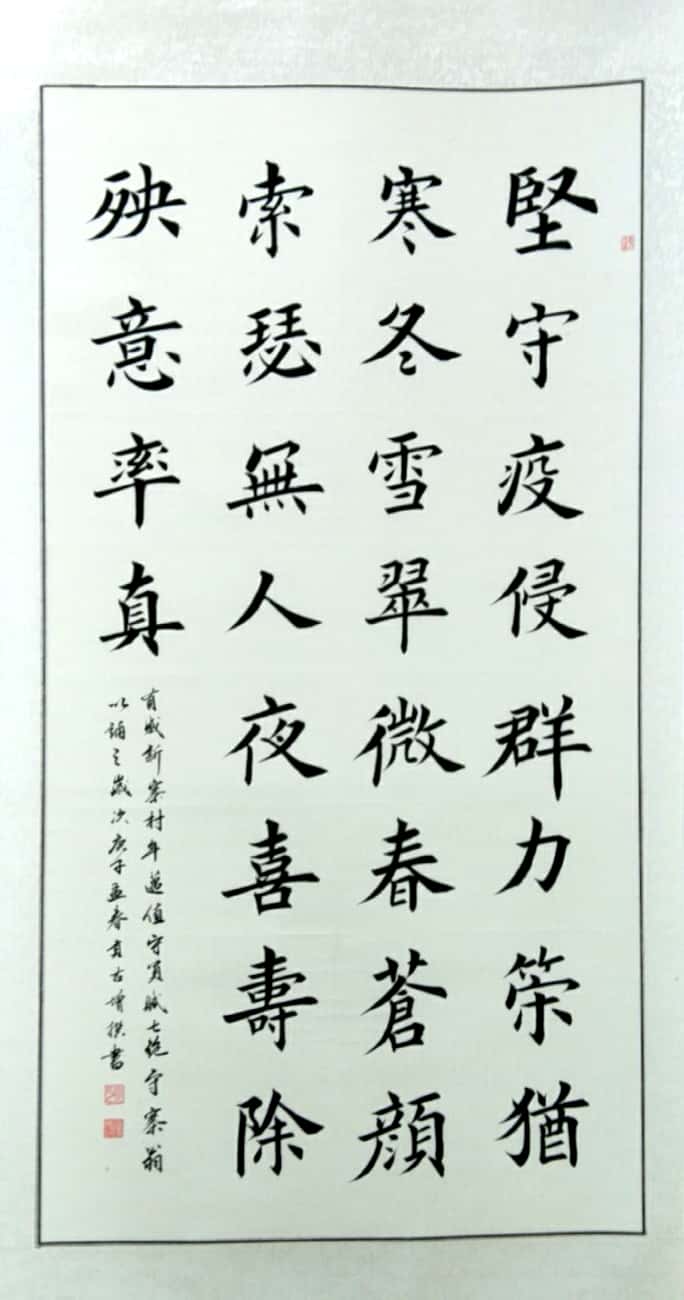 堅守疫侵群力策猶
寒冬雪翠微春蒼顔
索瑟無人夜喜壽除
殃意率真
有感新寨村年邁值守員賦七絕守寨翁
以誦之歲次庚子孟春古增撰書